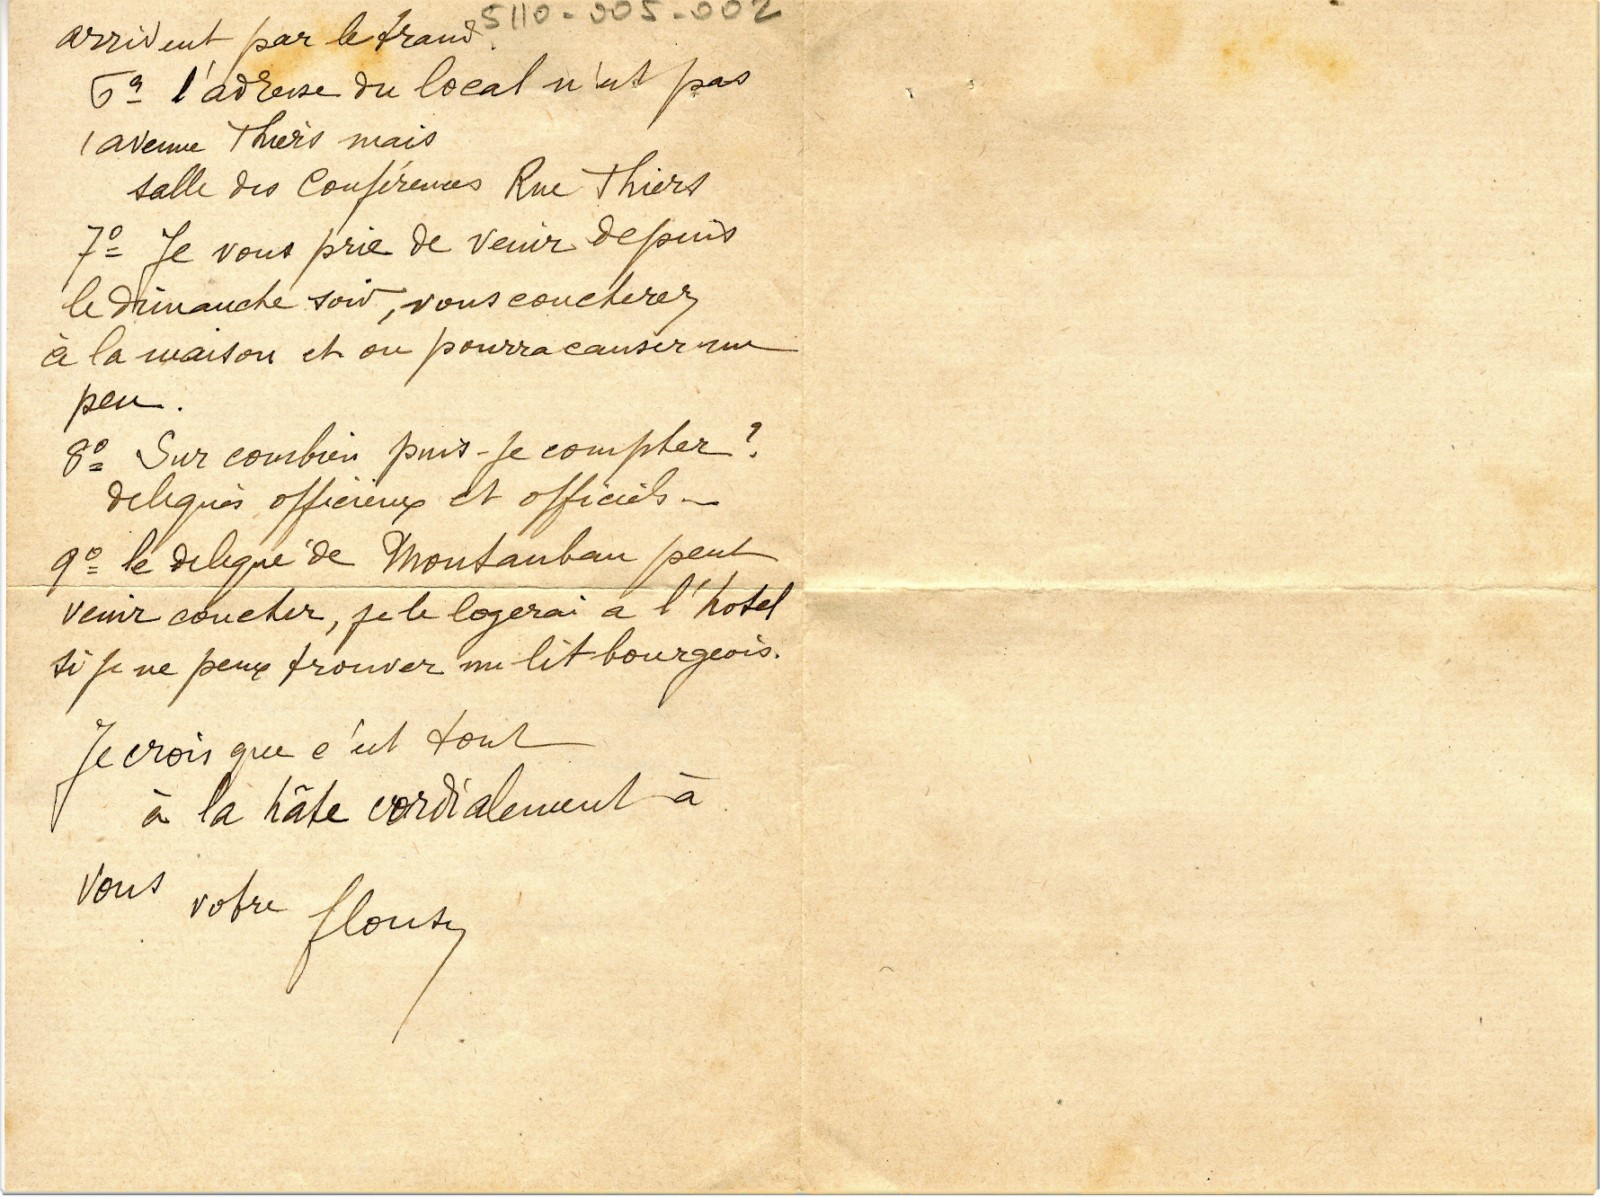 5110-005-002
arrivent par le tram.
6º l'adresse du local n'est pas
1 avenue Thiers mais
salle des Conférences Rue Thiers
7º Je vous prie de venir depuis
le dimanche soir, vous coucherez
à la maison et on pourra causer un
peu.
8º Sur combien puis-je compter?
delegués officieux et officiels
9º le delegué de Montauban peut
venir coucher, je le logerai a l'hotel
si je ne peux trouver un lit bourgeois.
Je crois que c'est tout
à la hâte cordialement à
vous votre